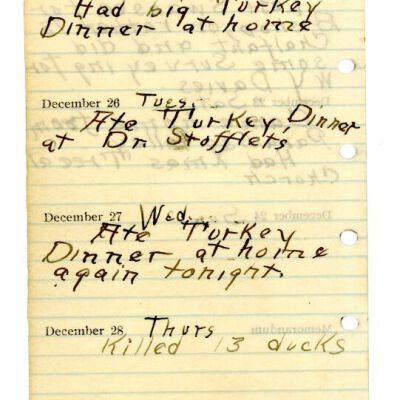 Had big Turkey
Dinner at home
December 26 Tues.
Ate Turkey Dinner
at Dr Stofflets
December 27 Wed.
Ate Turkey
Dinner at home
again tonight
December 28 Thurs
Killed 13 ducks